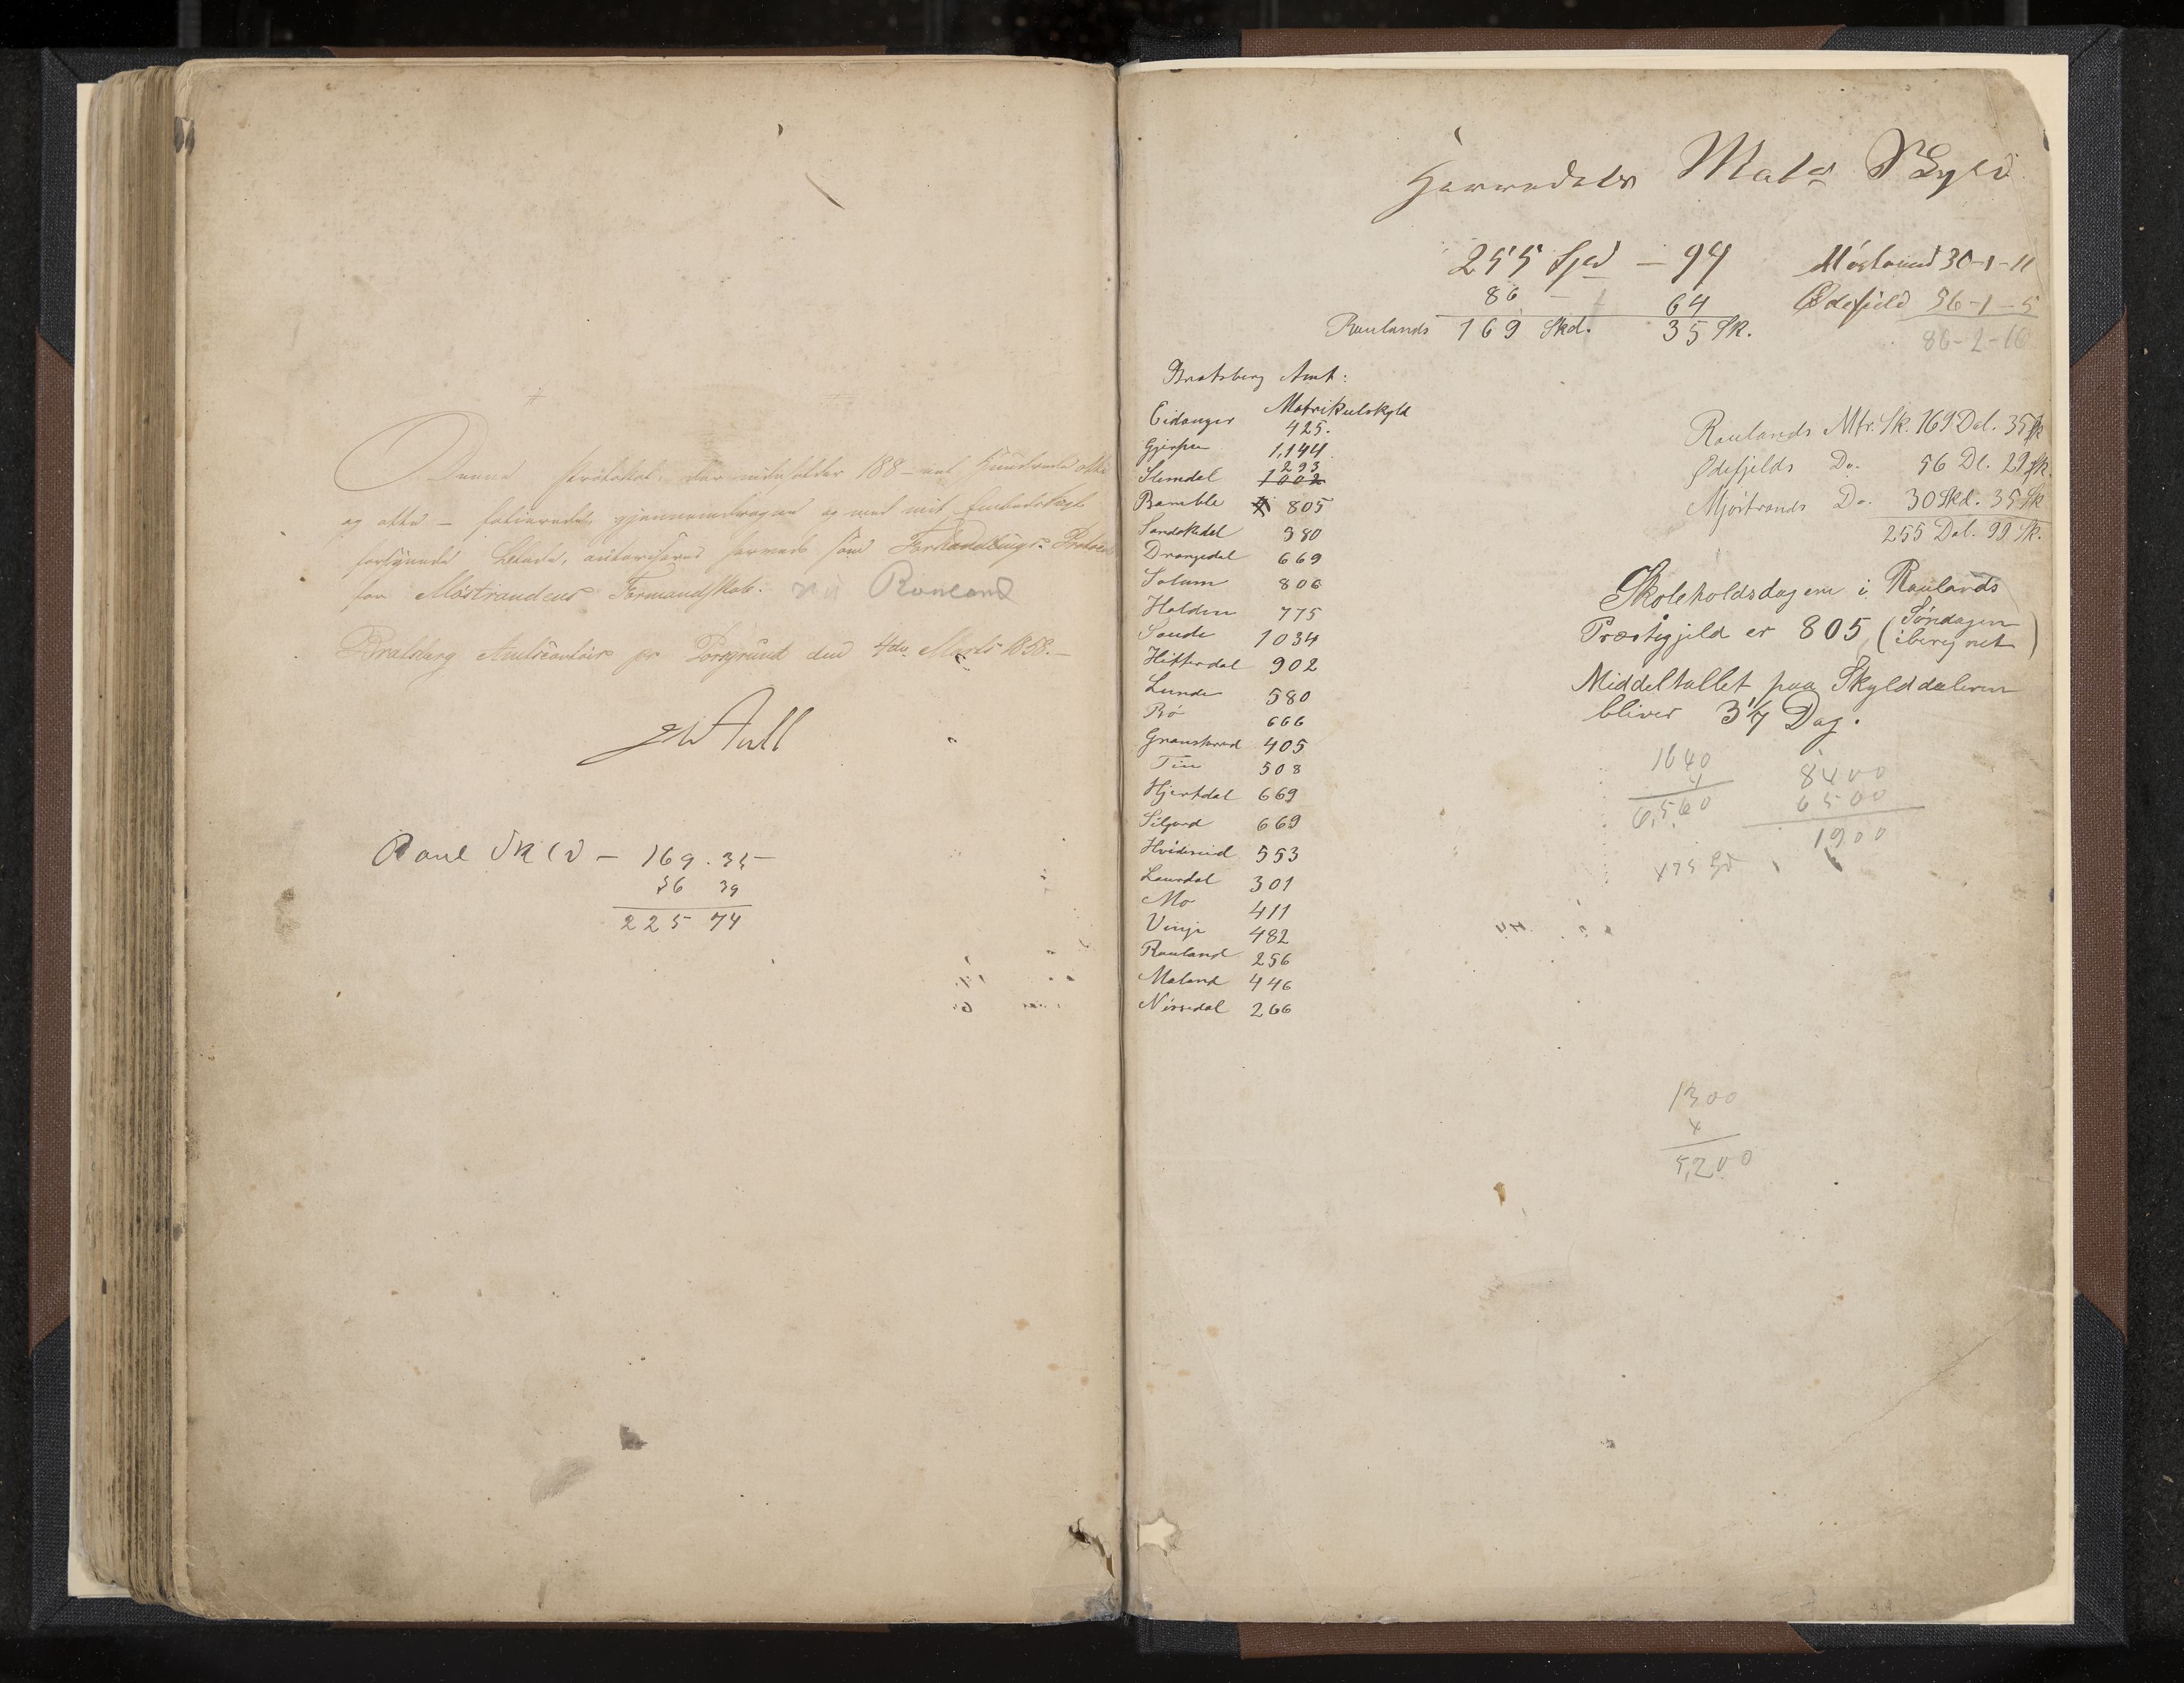 Denne Protokol, der indeholder 188 - et Hundrede otte
og otti - folierede, gjennemdragne og med mit Embedssegl
forsynede Blade, autoriseres herved som Forhandlings-Protocol
for Möstrandens Formandskab. Rauland
Bratsberg Amtscontoir pr Porsgrund den 4de Marts 1858.-
Aall
Raul Skld - 169.35
56 39
225 74
Herredets Matr Skyld
255 Spd - 94
86 - 64
Raulands 169 Skd. 35 Sk.
Möstrand 30-1-11
Ødefjeld 56-1-5
86-2-16
Bratsberg Amt:
Matrikulskyld
Eidanger 425.
Gjerpen 1,144
Slemdal 293
1002
Bamble 805
Sandøkedal 380
Drangedal 669
Solum 806
Holden 775
Saude 1034
Hitterdal 902
Lunde 580
Bö 666
Gransherred 405
Tin 508
Hjertdal 669
Siljord 669
Hvideseid 553
Laurdal 301
Mo 411
Vinje 482
Rauland 256
Moland 446
Nissedal 266
Raulands Mtr. Sk. 169 Dal. 35 Sk
Ødefjelds Do. 56 Dl. 29 Sk.
Mjöstrands Do. 30 Skd. 35 Sk
255 Dal. 99 Sk.
Skoleholdsdagene i Raulands
Præstegjeld er 805 (Søndagen iberegnet)
Middeltallet paa Skylddaleren
bliver 3 1/7 Dag.
1640
4
6,560
8400
6500
1900
1300
4
5,200